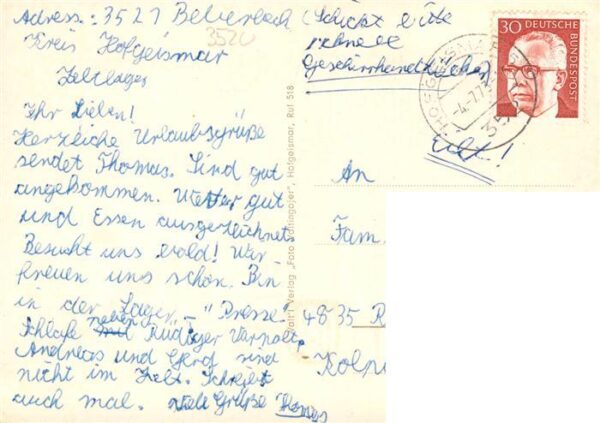 Adress.: 3527 Beberbeck (Schickt bitte
Kreis Hofgeismar
schnell
Zeltlager
Geschirrhandtücher)
3520
Eilt!
Ihr Lieben!
Herzliche Urlaubsgrüße
sendet Thomas. Sind gut
angekommen. Wetter gut
und Essen ausgezeichnet.
Besucht uns bald! Wir
freuen uns schon. Bin
in der Lager- "Presse".
Schlafe neben Rüdiger
Andreas und Gerd sind
nicht im Zelt. Schreibt
auch mal. Viele Grüße Thomas
Verlag "Foto
Hofgeismar, Ruf 518
30 DEUTSCHE BUNDESPOST
HOFGEISMAR
An
Fam.
4835 R
Kolpi